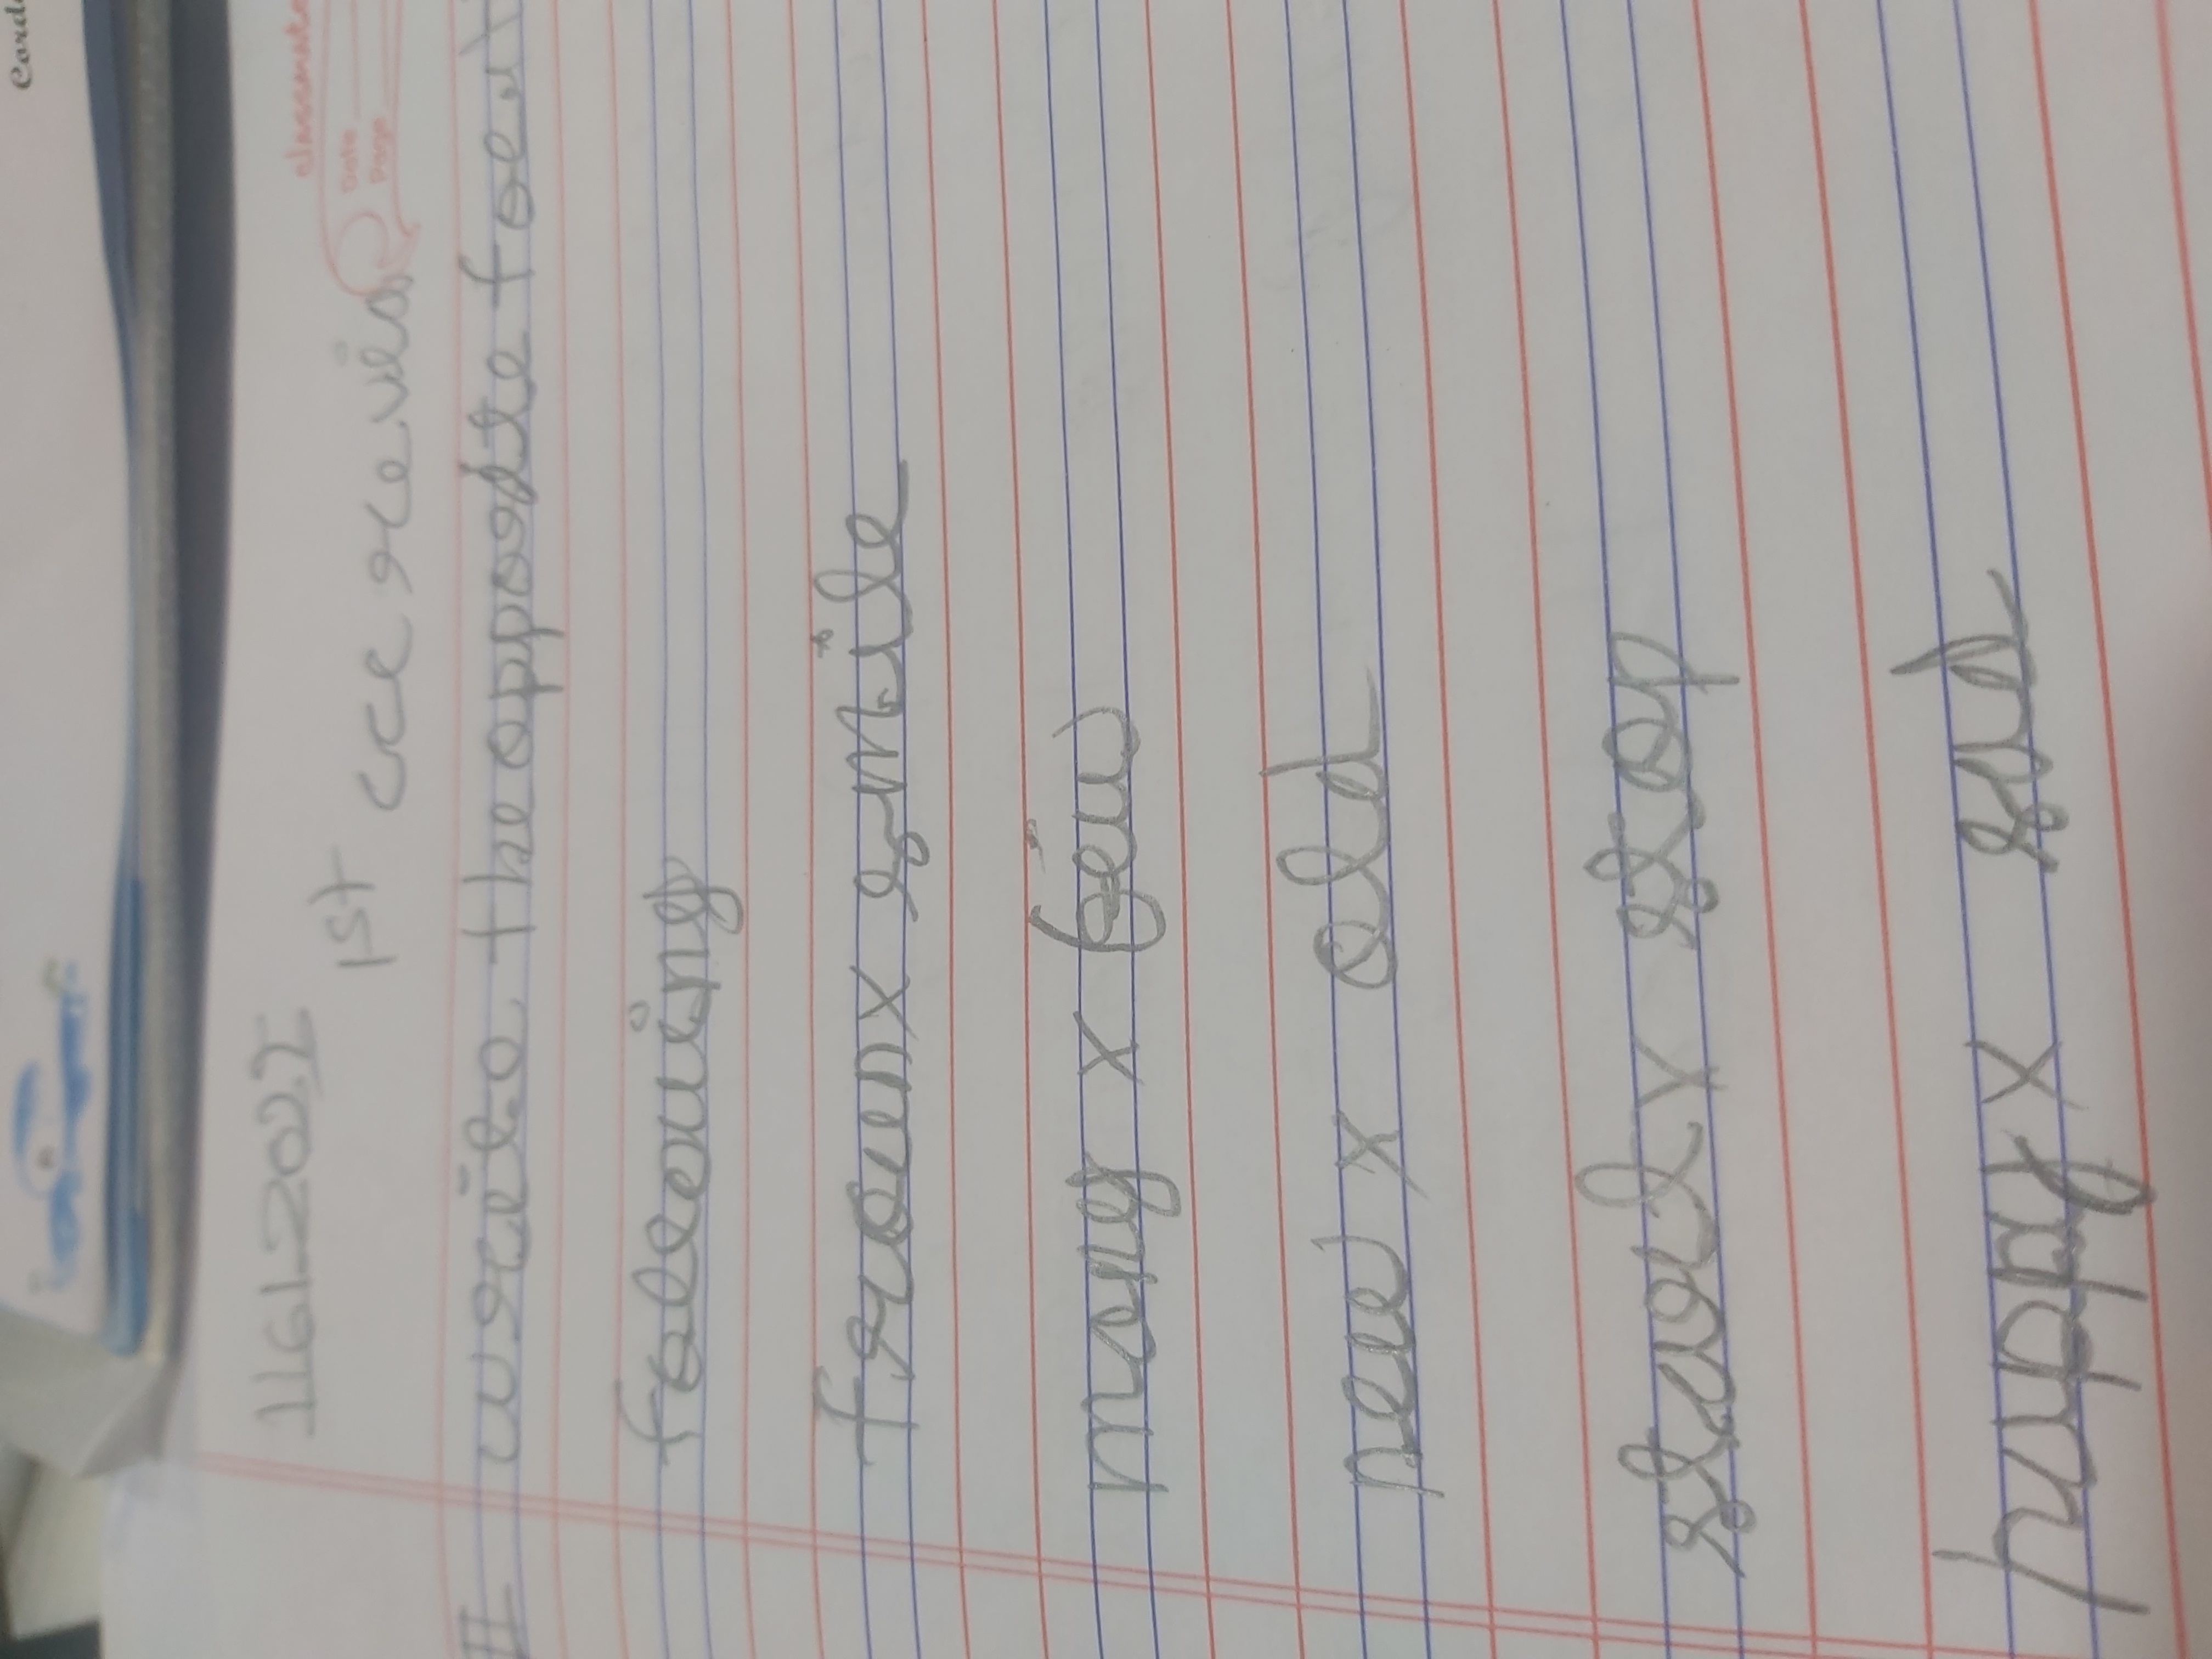 11612022
1st cce revision
II write the opposite for
following
frown x smile
many x few
new x old
start x stop
happy x sad
classmate
Date
Page